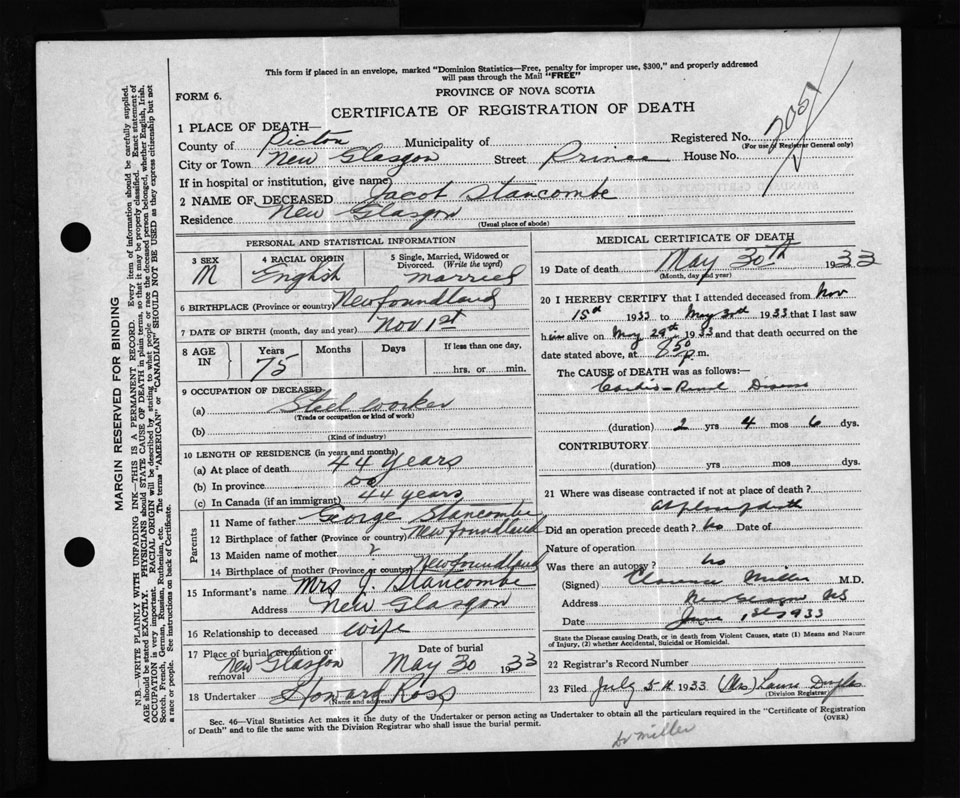 This form if placed in an envelope, marked "Dominion Statistics—Free, penalty for improper use, $300," and properly addressed
will pass through the Mail "FREE"
PROVINCE OF NOVA SCOTIA
FORM 6.
CERTIFICATE OF REGISTRATION OF DEATH
1 PLACE OF DEATH—
County of Pictou Municipality of Registered No.
(For use of Registrar General only)
City or Town New Glasgow Street Prince House No.
If in hospital or institution, give name)
2 NAME OF DECEASED Jacob Stancombe
Residence New Glasgow
(Usual place of abode)
PERSONAL AND STATISTICAL INFORMATION
3 SEX 4 RACIAL ORIGIN 5 Single, Married, Widowed or
Divorced. (Write the word)
M English Married
6 BIRTHPLACE (Province or country) Newfoundland
7 DATE OF BIRTH (month, day and year) Nov 1st
8 AGE IN Years Months Days If less than one day,
75 hrs. or min.
9 OCCUPATION OF DECEASED
(a) Steel worker
(Trade or occupation or kind of work)
(b)
(Kind of industry)
10 LENGTH OF RESIDENCE (in years and months)
(a) At place of death 44 years
(b) In province do
(c) In Canada (if an immigrant) 44 years
Parents
11 Name of father George Stancombe
12 Birthplace of father (Province or country) Newfoundland
13 Maiden name of mother ?
14 Birthplace of mother (Province or country) Newfoundland
15 Informant's name Mrs J. Stancombe
Address New Glasgow
16 Relationship to deceased wife
17 Place of burial, cremation or removal Date of burial
New Glasgow May 30 1933
18 Undertaker Howard Ross
(Name and address)
MEDICAL CERTIFICATE OF DEATH
19 Date of death May 30th 1933
(Month, day and year)
20 I HEREBY CERTIFY that I attended deceased from Nov
15th 1933 to May 30th 1933 that I last saw
him alive on May 29th 1933 and that death occurred on
date stated above, at 750 p.m.
The CAUSE of DEATH was as follows:—
Cardio-Renal Disease
(duration) 2 yrs 4 mos 6 dys.
CONTRIBUTORY
(duration) yrs mos dys.
21 Where was disease contracted if not at place of death?
At place of death
Did an operation precede death? No Date of
Nature of operation
Was there an autopsy? No
(Signed) Clarence Miller M.D.
Address New Glasgow NS
Date June 1st 1933
State the Disease causing Death, or in death from Violent Causes, state (1) Means and Nature
of Injury, (2) whether Accidental, Suicidal or Homicidal.
22 Registrar's Record Number
23 Filed July 5th 1933 (Mrs) Laura Douglas
(Division Registrar)
Sec. 46—Vital Statistics Act makes it the duty of the Undertaker or person acting as Undertaker to obtain all the particulars required in the "Certificate of Registration
of Death" and to file the same with the Division Registrar who shall issue the burial permit.
(OVER)
Dr Miller
MARGIN RESERVED FOR BINDING
N.B.—WRITE PLAINLY WITH UNFADING INK—THIS IS A PERMANENT RECORD. Every item of information should be carefully supplied.
AGE should be stated EXACTLY. PHYSICIANS should STATE CAUSE OF DEATH in plain terms, so that it may be properly classified. Exact statement of
OCCUPATION is very important. RACIAL ORIGIN will be described by stating to what people or race the deceased person belonged, whether English, Irish,
Scotch, French, German, Russian, Ruthenian, etc. The terms "AMERICAN" or "CANADIAN" SHOULD NOT BE USED as they express citizenship but not
a race or people. See instructions on back of Certificate.